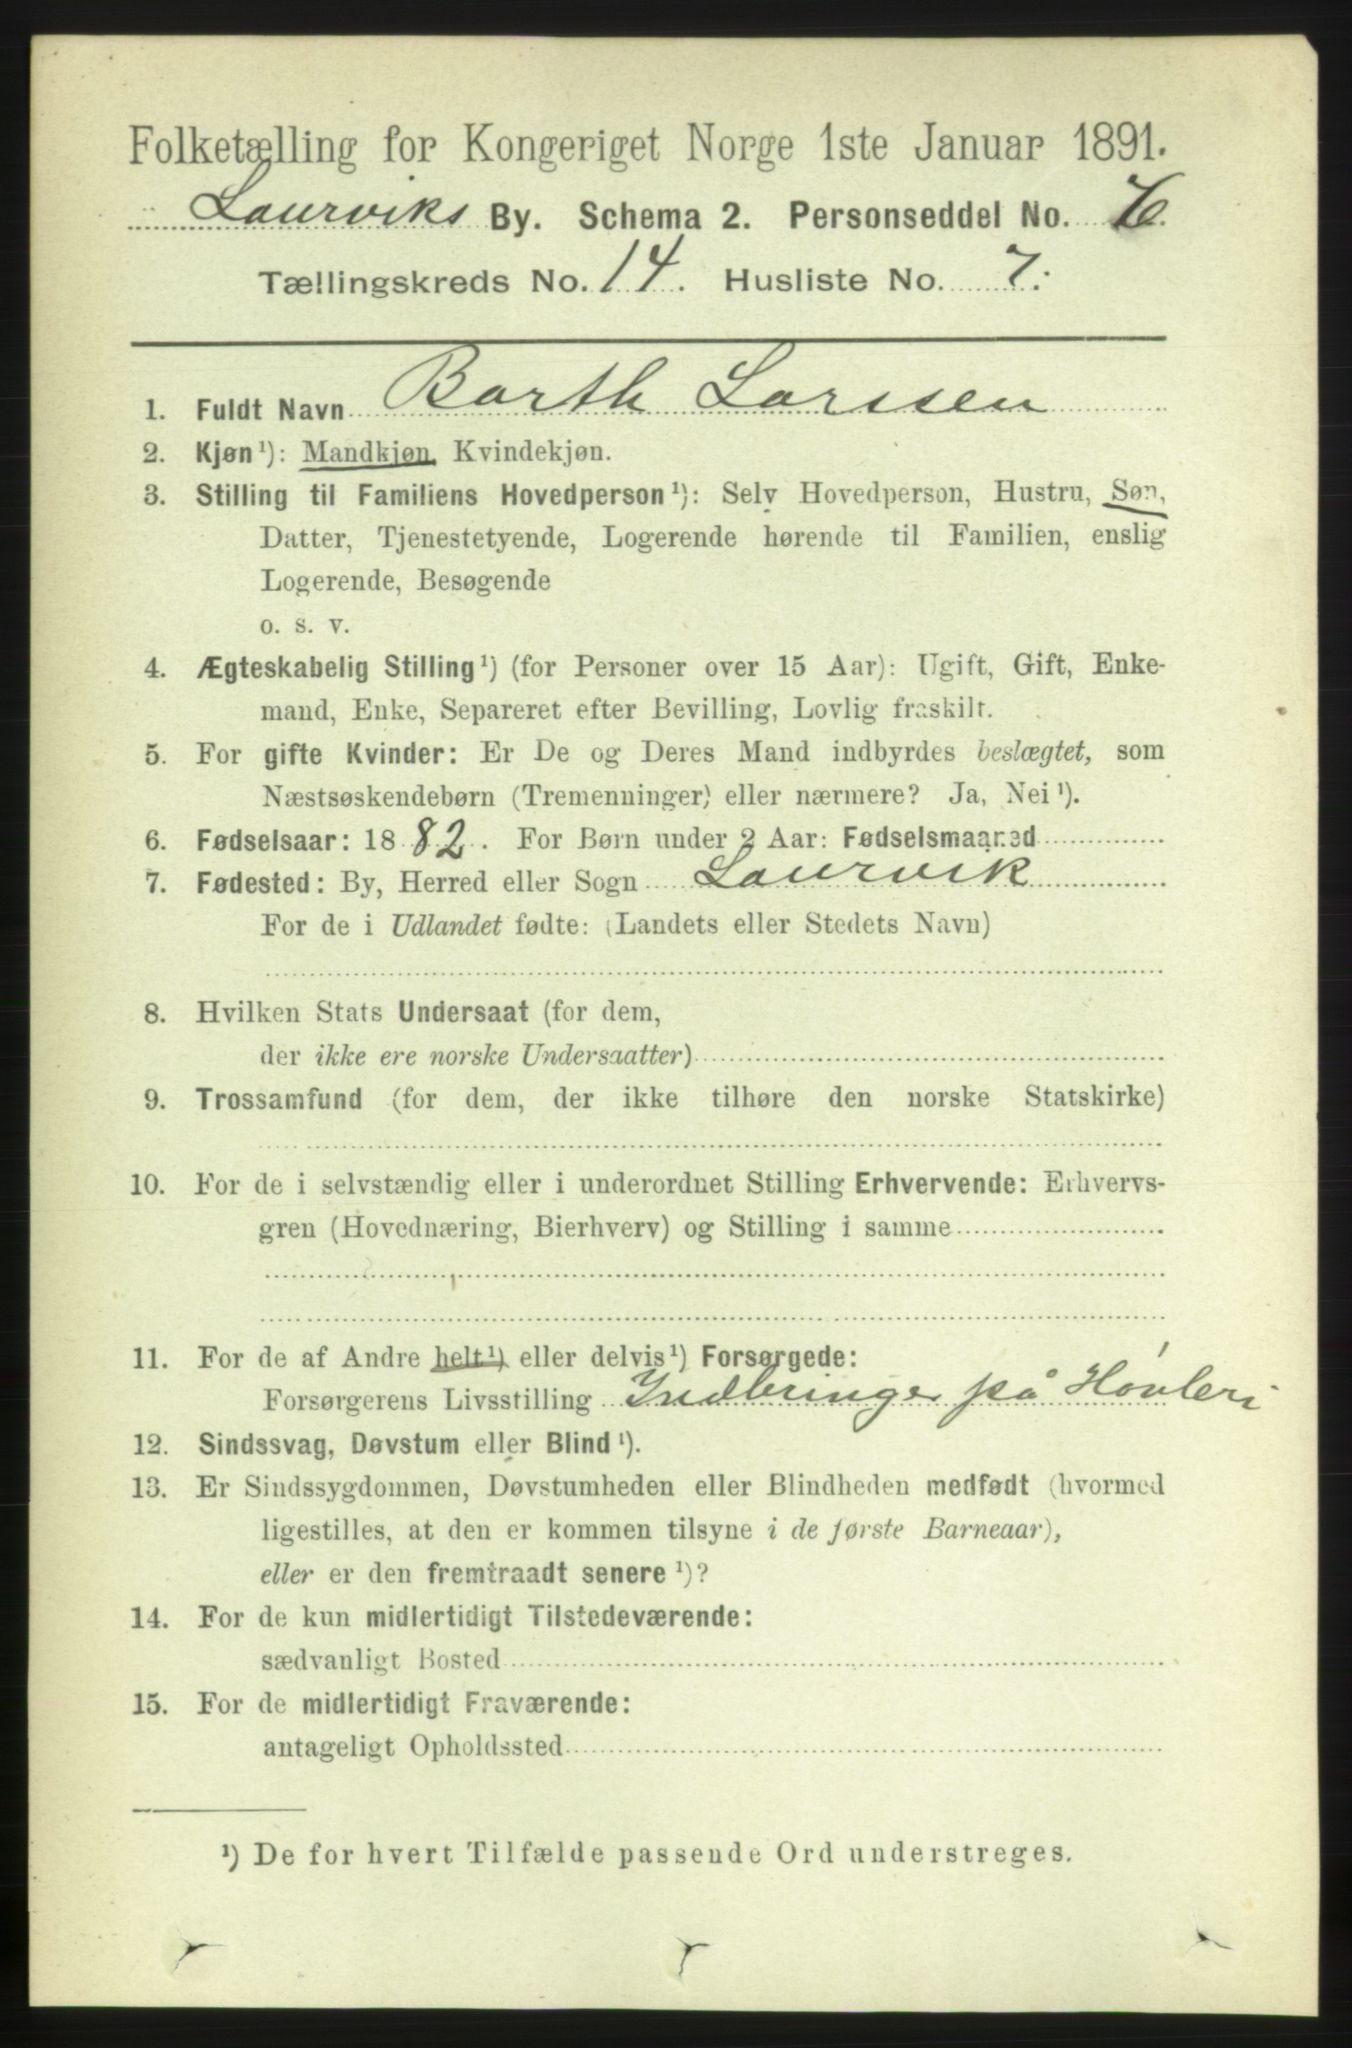 Folketælling for Kongeriget Norge 1ste Januar 1891.
Laurviks By. Schema 2. Personseddel No. 6.
Tællingskreds No. 14. Husliste No. 7.
1. Fuldt Navn Barth Larssen
2. Kjøn¹): Mandkjøn, Kvindekjøn.
3. Stilling til Familiens Hovedperson¹): Selv Hovedperson, Hustru, Søn,
Datter, Tjenestetyende, Logerende hørende til Familien, enslig
Logerende, Besøgende
o. s. v.
4. Ægteskabelig Stilling¹) (for Personer over 15 Aar): Ugift, Gift, Enke-
mand, Enke, Separeret efter Bevilling, Lovlig fraskilt.
5. For gifte Kvinder: Er De og Deres Mand indbyrdes beslægtet, som
Næstsøskendebørn (Tremenninger) eller nærmere? Ja, Nei¹).
6. Fødselsaar: 1882. For Børn under 2 Aar: Fødselsmaaned
7. Fødested: By, Herred eller Sogn Laurvik
For de i Udlandet fødte: (Landets eller Stedets Navn)
8. Hvilken Stats Undersaat (for dem,
der ikke ere norske Undersaatter)
9. Trossamfund (for dem, der ikke tilhøre den norske Statskirke)
10. For de i selvstændig eller i underordnet Stilling Erhvervende: Erhvervs-
gren (Hovednæring, Bierhverv) og Stilling i samme
11. For de af Andre helt¹) eller delvis¹) Forsørgede:
Forsørgerens Livsstilling Indbringer på Høvleri
12. Sindssvag, Døvstum eller Blind¹).
13. Er Sindssygdommen, Døvstumheden eller Blindheden medfødt (hvormed
ligestilles, at den er kommen tilsyne i de første Barneaar),
eller er den fremtraadt senere¹)?
14. For de kun midlertidigt Tilstedeværende:
sædvanligt Bosted
15. For de midlertidigt Fraværende:
antageligt Opholdssted
¹) De for hvert Tilfælde passende Ord understreges.